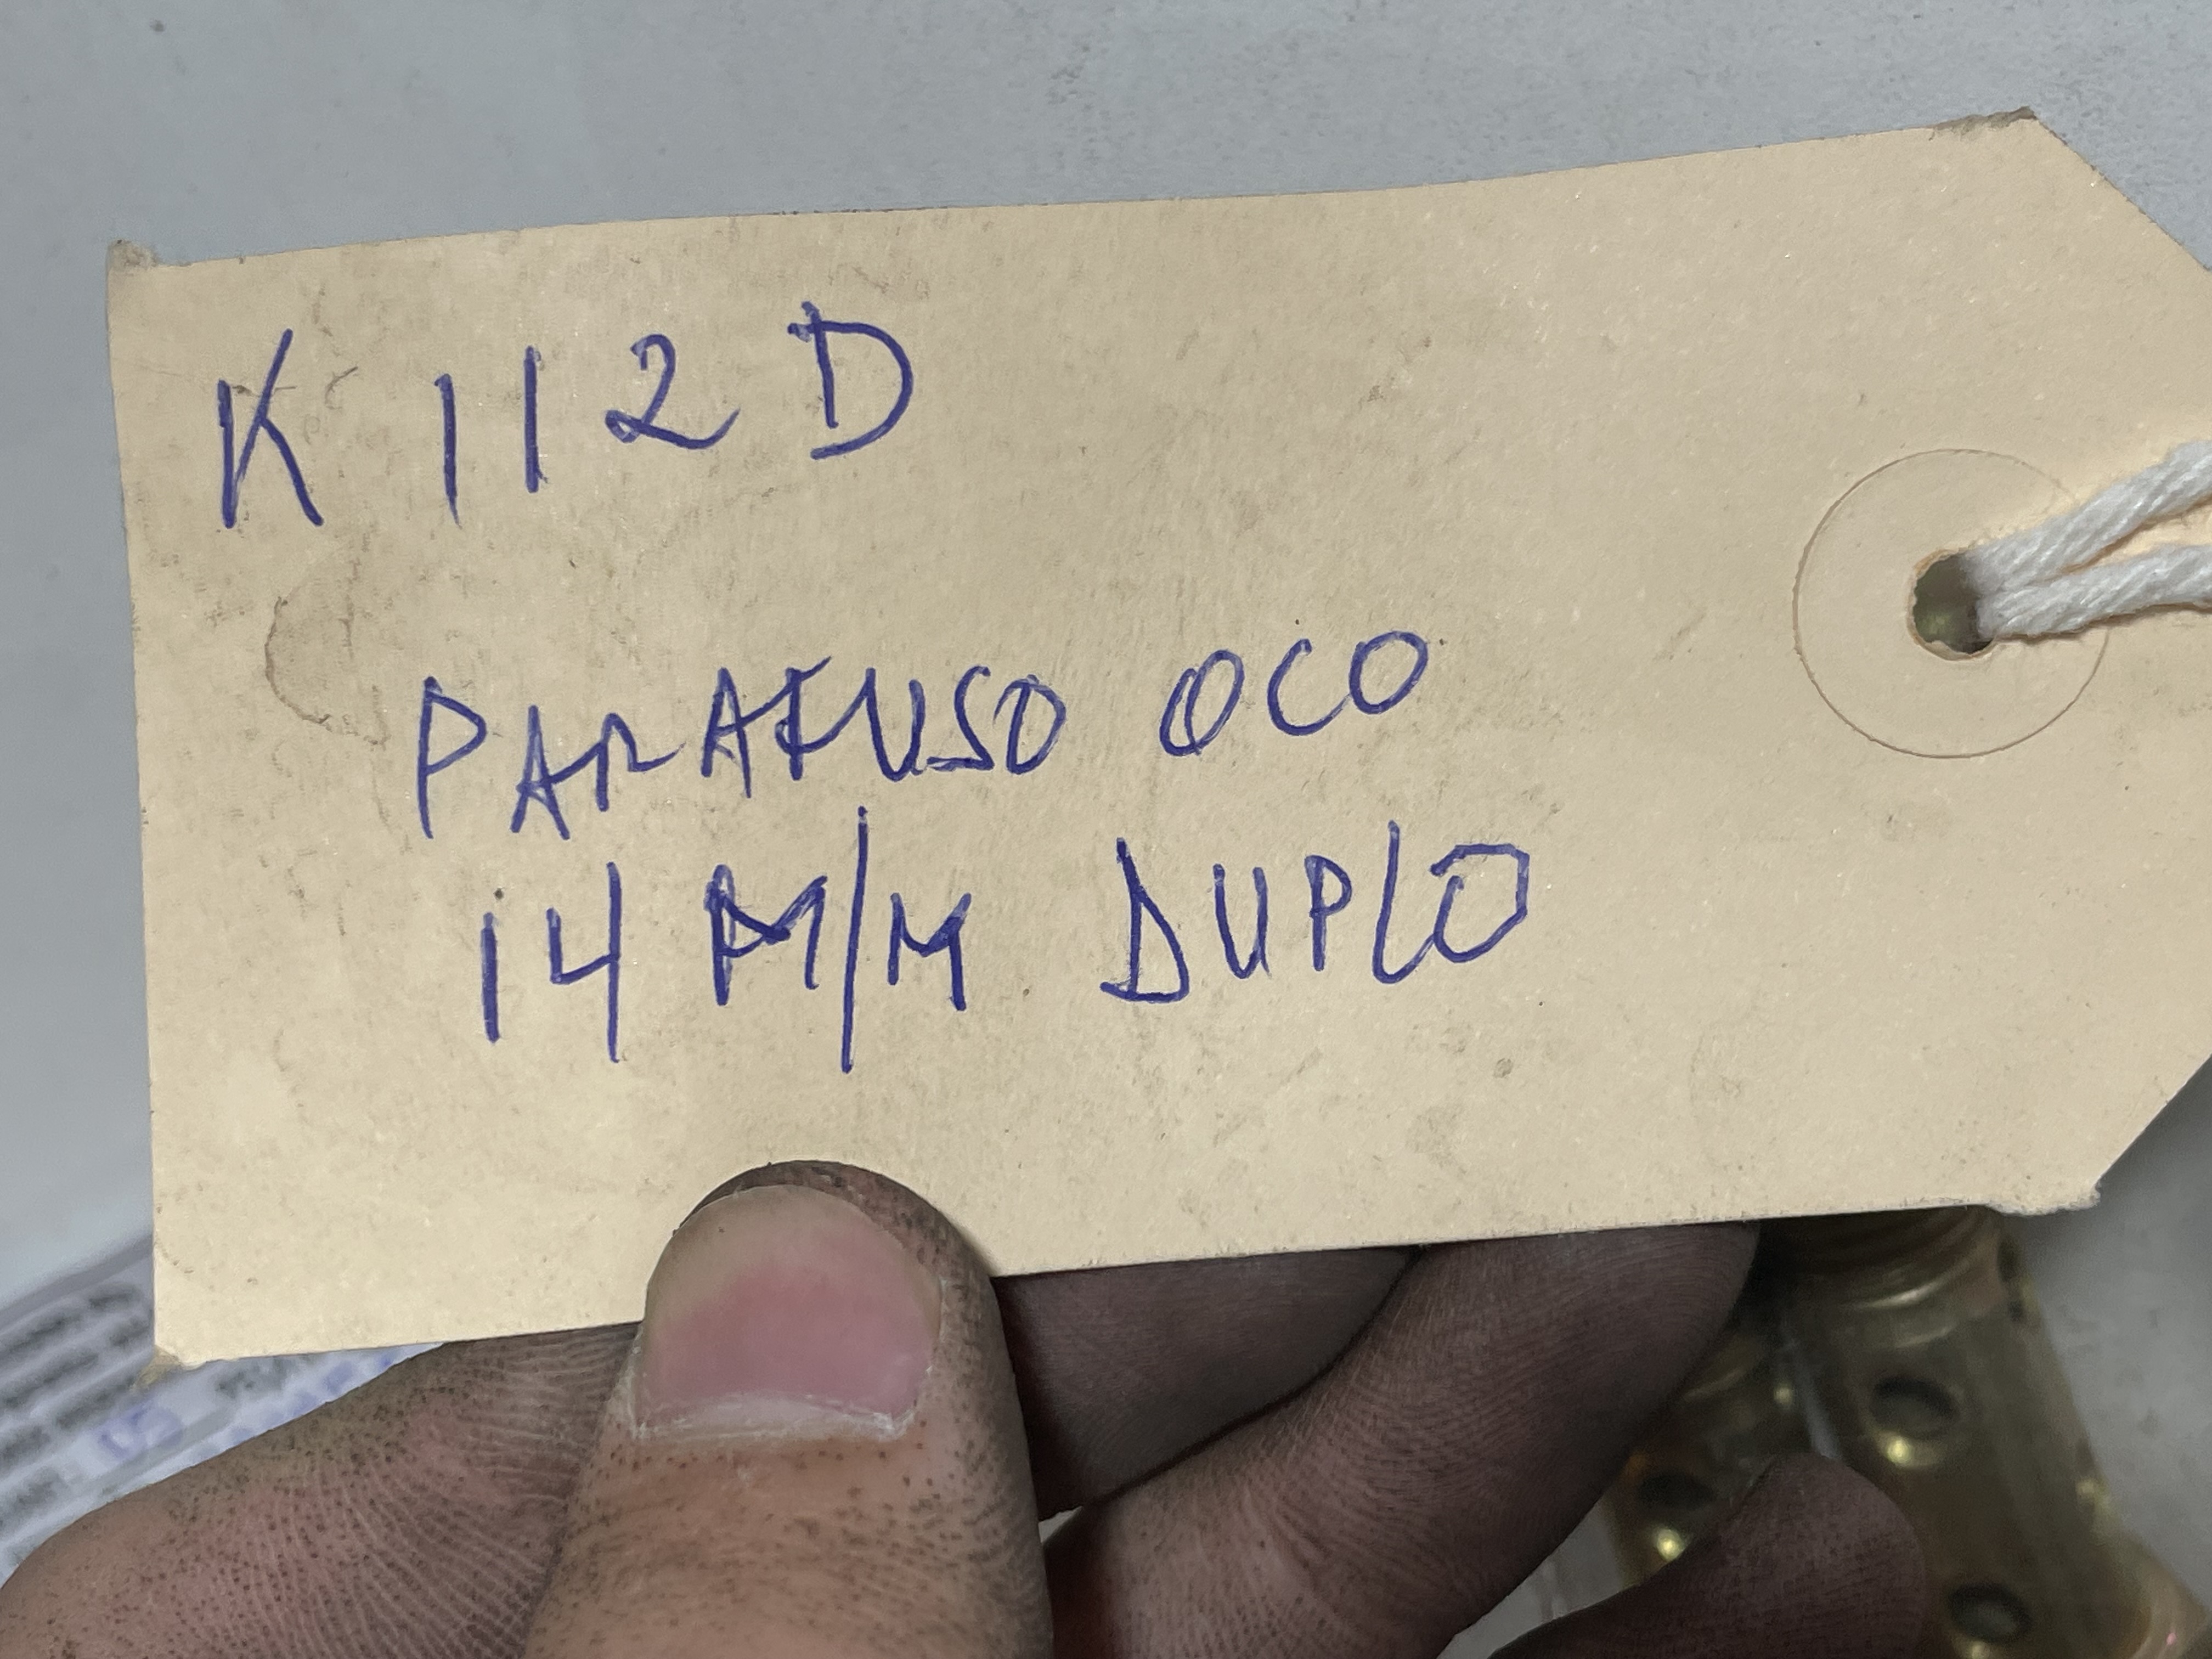 K 112 D
PARAFUSO OCO
14 M/M DUPLO